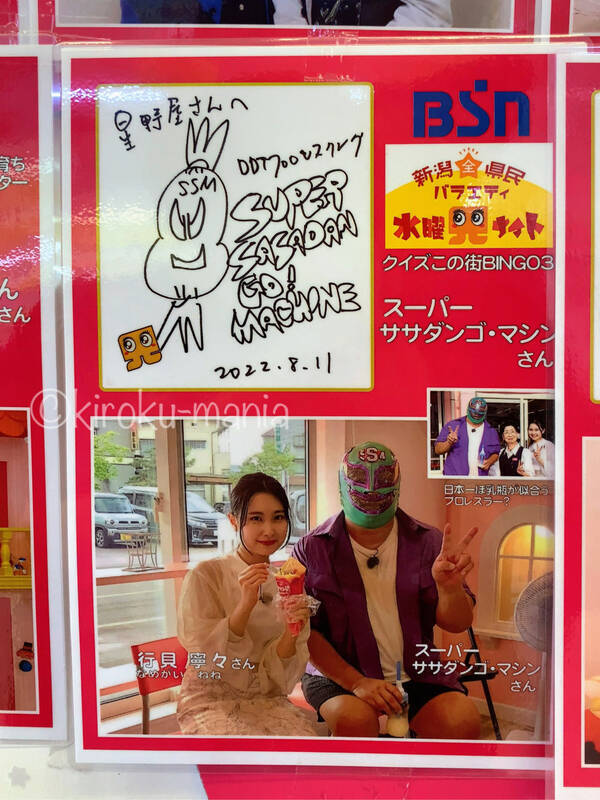 星野屋さんへ
SSM
DDTプロレスリング
SUPER
SASADAN
GO!
MACHINE
2022.8.11
BSN
新潟全県民
バラエティ
水曜見ナイト
クイズこの街BINGO3
スーパー
ササダンゴ・マシン
さん
日本一ほ乳瓶が似合う
プロレスラー?
行貝 寧々さん
なめかい ねね
スーパー
ササダンゴ・マシン
さん
育ち
ター
ん
さん
©kiroku-mania